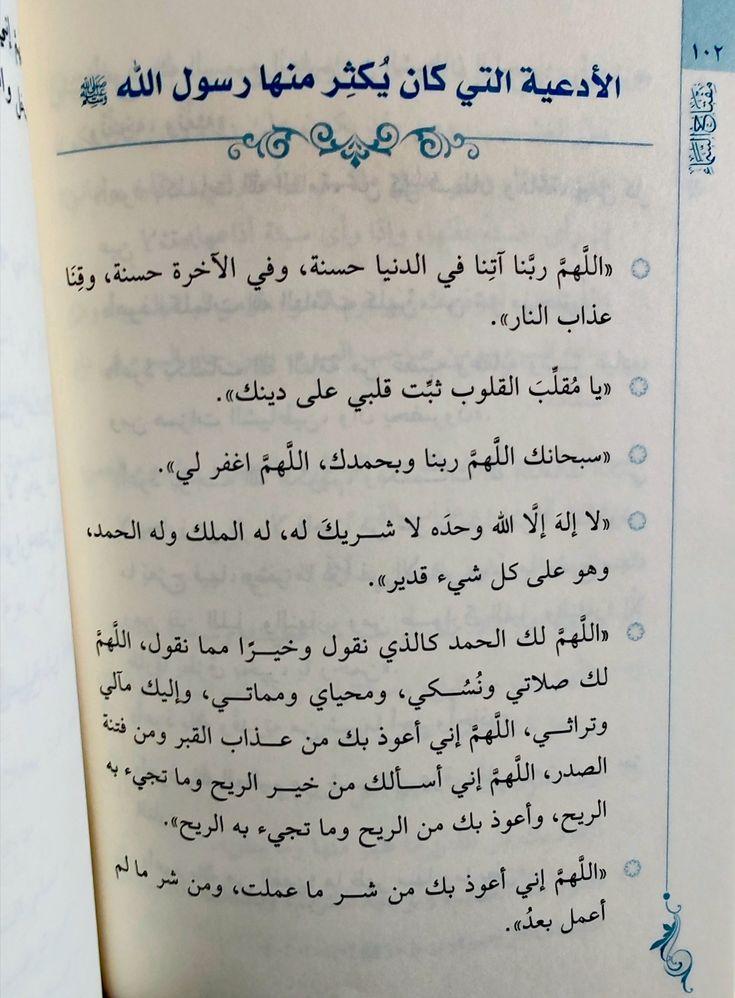 ١٠٢
مفتاح السماء
الأدعية التي كان يُكثِر منها رسول الله ﷺ
«اللَّهمَّ ربَّنا آتِنا في الدنيا حسنة، وفي الآخرة حسنة، وقِنَا
عذاب النار».
«يا مُقلِّبَ القلوب ثبِّت قلبي على دينك».
«سبحانك اللَّهمَّ ربنا وبحمدك، اللَّهمَّ اغفر لي».
«لا إلهَ إلَّا الله وحدَه لا شـريكَ له، له الملك وله الحمد،
وهو على كل شيء قدير».
«اللَّهمَّ لك الحمد كالذي نقول وخيـرًا مما نقول، اللَّهمَّ
لك صلاتي ونُسُـكي، ومحياي ومماتـي، وإليك مآلي
وتراثـي، اللَّهمَّ إني أعوذ بك من عـذاب القبر ومن فتنة
الصدر، اللَّهمَّ إني أسـألك من خيـر الريح وما تجيء به
الريح، وأعوذ بك من الريح وما تجيء به الريح».
«اللَّهمَّ إني أعوذ بك من شـر ما عملت، ومن شر ما لم
أعمل بعدُ».